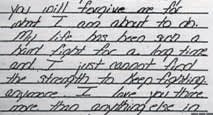 you will forgive me for
what I am about to do.
My life has been such a
hard fight for a long time
and I just cannot find
the strength to keep fighting
anymore I love you three
more than anything else in